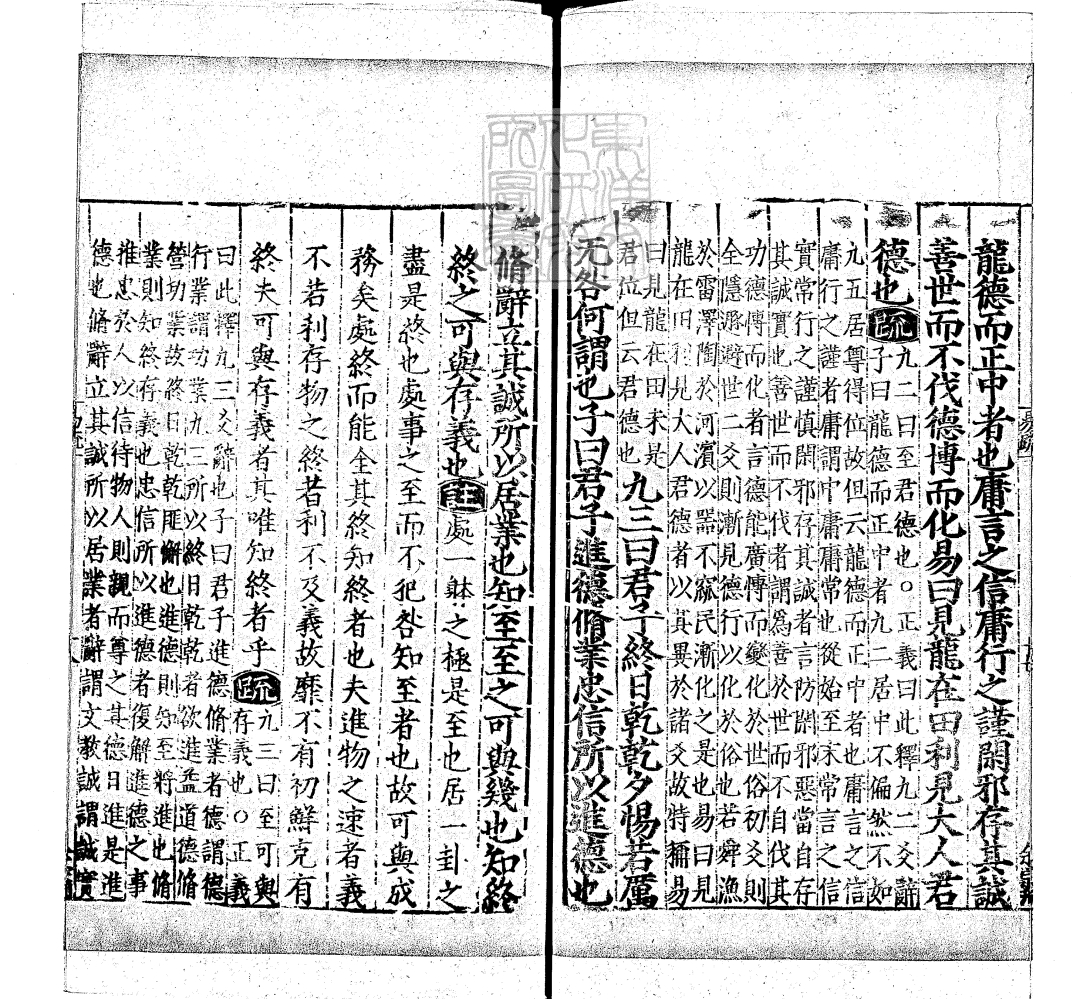 龍德而正中者也庸言之信庸行之謹閑邪存其誠
善世而不伐德博而化易曰見龍在田利見大人君
德也疏九二曰至君德也○正義曰此釋九二爻辭
子曰龍德而正中者九二居中不偏然不如
九五居尊得位故但云龍德而正中者也庸言之信
庸行之謹者庸謂中庸庸常也從始至末常言之信
實常行之謹慎閑邪存其誠者言防閑邪惡當自存
其誠實也善世而不伐者謂爲善於世而不自伐其
功德博而化者言德能廣博而變化於世俗初爻則
全隱遯避世二爻則漸見德行以化於俗也若舜漁
於雷澤陶於河濱以器不窳民漸化之是也易曰見
龍在田利見大人君德者以其異於諸爻故特稱易
曰見龍在田未是
君位但云君德也
九三曰君子終日乾乾夕惕若厲
无咎何謂也子曰君子進德脩業忠信所以進德也
脩辭立其誠所以居業也知至至之可與幾也知終
終之可與存義也注處一躰之極是至也居一卦之
盡是終也處事之至而不犯咎知至者也故可與成
務矣處終而能全其終知終者也夫進物之速者義
不若利存物之終者利不及義故靡不有初鮮克有
終夫可與存義者其唯知終者乎疏九三曰至可與
存義也○正義
曰此釋九三爻辭也子曰君子進德脩業者德謂德
行業謂功業九三所以終日乾乾者欲進益道德脩
營功業故終日乾乾匪懈也進德則知至將進也脩
業則知終存義也忠信所以進德者復解進德之事
推忠於人以信待物人則親而尊之其德日進是進
德也脩辭立其誠所以居業者辭謂文教誠謂誠實